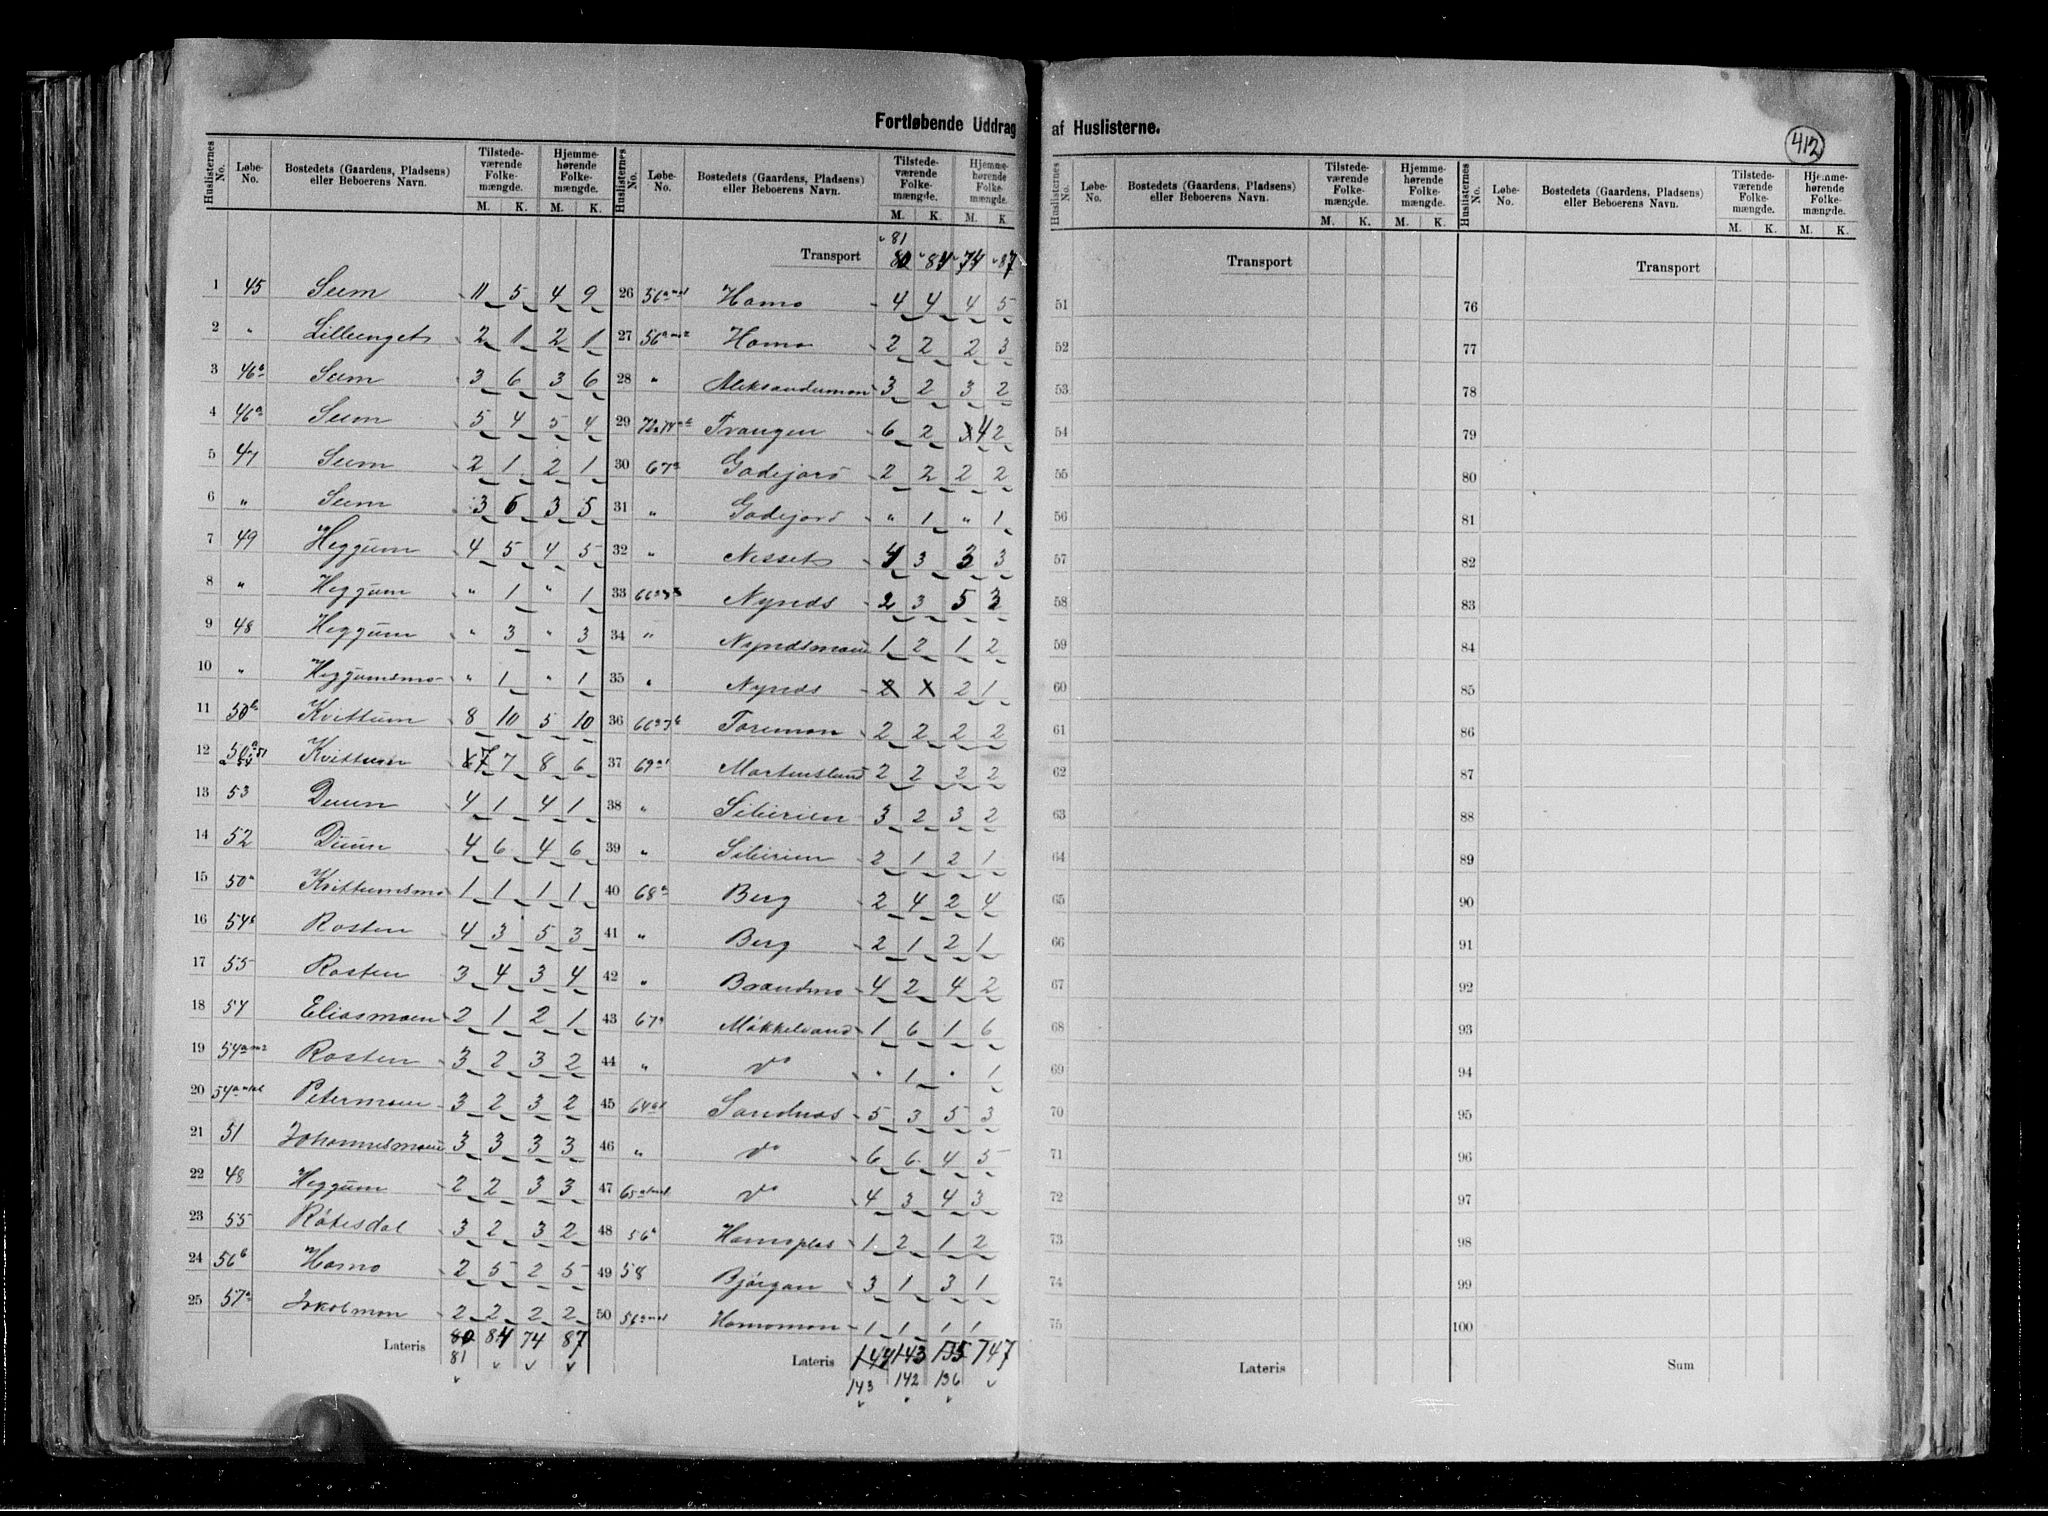 Fortløbende Uddrag af Huslisterne.
412
Huslisternes No. Løbe-No. Bostedets (Gaardens, Pladsens) eller Beboerens Navn. Tilstedeværende Folkemængde. M. K. Hjemmehørende Folkemængde. M. K.
1 45 Seem 11 5 4 9
2 " Lillenget 2 1 2 1
3 46 Seem 3 6 3 6
4 46a Seem 5 4 5 4
5 47 Seem 2 1 2 1
6 " Seem 3 6 3 5
7 49 Heggum 4 5 4 5
8 " Heggum " 1 " 1
9 48 Heggum " 3 " 3
10 " Heggumsmo " 1 " 1
11 50b Kvittum 8 10 5 10
12 50a 51 Kvittum 7 7 8 6
13 53 Duun 4 1 4 1
14 52 Duun 4 6 4 6
15 50a Kvittumsmo 1 1 1 1
16 54b Rosten 4 3 5 3
17 55 Rosten 3 4 3 4
18 54 Eliasmoen 2 1 2 1
19 54a Rosten 3 2 3 2
20 54a Petermoen 3 2 3 2
21 51 Johannesmoen 3 3 3 3
22 48 Heggum 2 2 3 3
23 55 Røtesdal 3 2 3 2
24 56b Homo 2 5 2 5
25 57a Jakobmon 2 2 2 2
Lateris 80 84 74 87
81
Huslisternes No. Løbe-No. Bostedets (Gaardens, Pladsens) eller Beboerens Navn. Tilstedeværende Folkemængde. M. K. Hjemmehørende Folkemængde. M. K.
81
Transport 80 84 74 87
26 56a Homo 4 4 4 5
27 56a Homo 2 2 2 3
28 " Aleksandermon 3 2 3 2
29 Trangen 6 2 4 2
30 67a Godejord 2 2 2 2
31 " Godejord " 1 " 1
32 " Nesset 4 3 3 3
33 66 Nyneds 2 3 5 3
34 " Nynedsmoen 1 2 1 2
35 " Nyneds 2 X 2 1
36 66 Toremon 2 2 2 2
37 69a1 Mortensland 2 2 2 2
38 " Sibirien 3 2 3 2
39 " Sibirien 2 1 2 1
40 68a Berg 2 4 2 4
41 " Berg 2 1 2 1
42 " Brandmo 4 2 4 2
43 67a Møkkelvand 1 6 1 6
44 " do " 1 " 1
45 64a1 Sandnas 5 3 5 3
46 " do 6 6 4 5
47 65 do 4 3 4 3
48 56a Homoplas 1 2 1 2
49 58 Bjørgan 3 1 3 1
50 56a Homomon 1 1 1 1
Lateris 144 143 135 147
143 142 136
Huslisternes No. Løbe-No. Bostedets (Gaardens, Pladsens) eller Beboerens Navn. Tilstedeværende Folkemængde. M. K. Hjemmehørende Folkemængde. M. K.
Transport
51
52
53
54
55
56
57
58
59
60
61
62
63
64
65
66
67
68
69
70
71
72
73
74
75
Lateris
Huslisternes No. Løbe-No. Bostedets (Gaardens, Pladsens) eller Beboerens Navn. Tilstedeværende Folkemængde. M. K. Hjemmehørende Folkemængde. M. K.
Transport
76
77
78
79
80
81
82
83
84
85
86
87
88
89
90
91
92
93
94
95
96
97
98
99
100
Sum